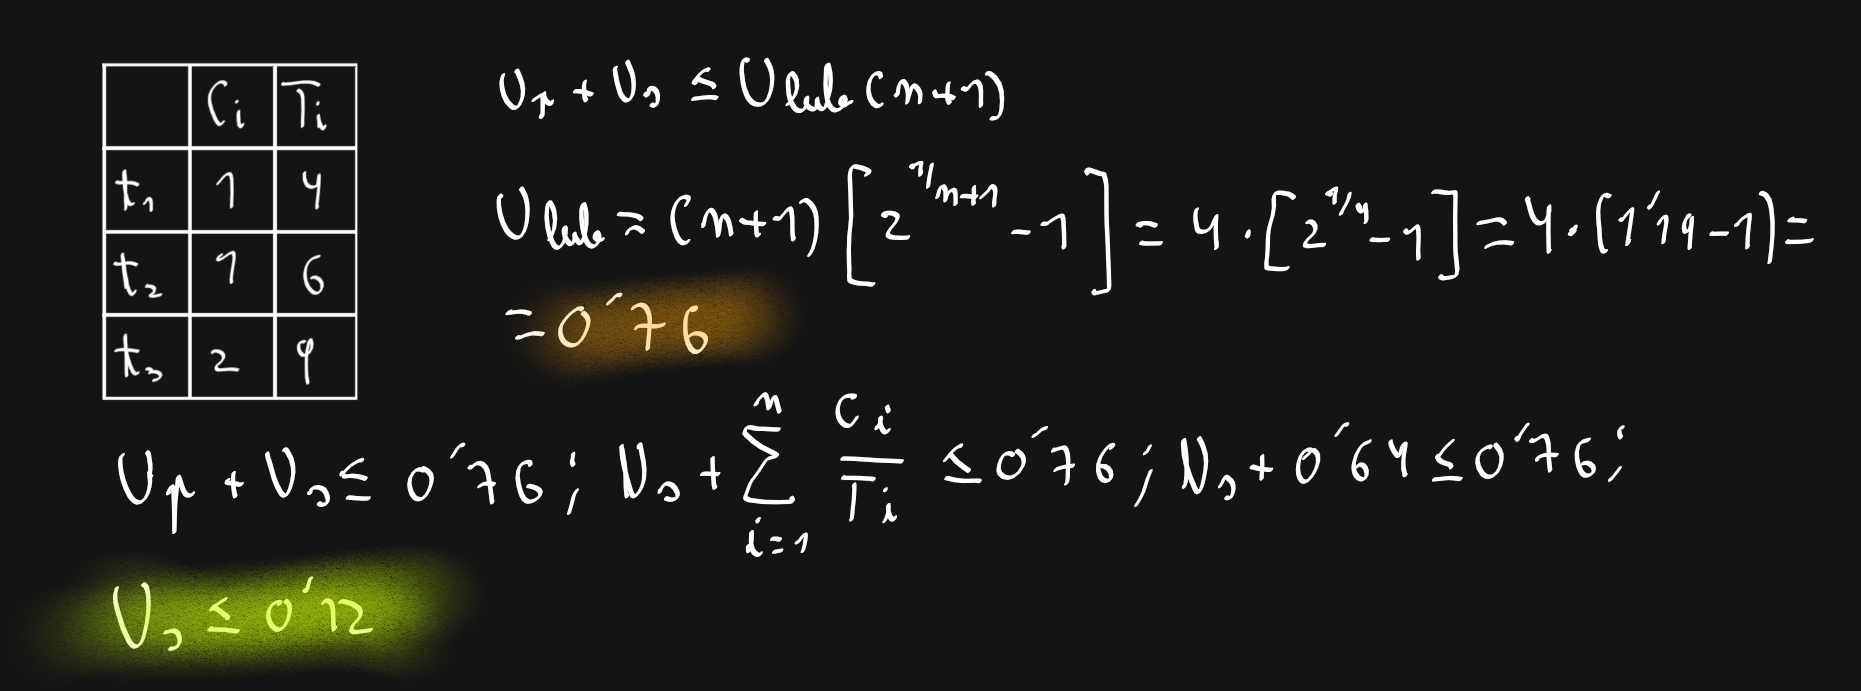 Ci Ti
t₁ 1 4
t₂ 1 6
t₃ 2 9
Up + Us ≤ Ulub (n+1)
Ulub = (n+1) [2^(1/n+1) - 1] = 4 · [2^(1/4) - 1] = 4 · (1'19 - 1) =
= 0'76
Up + Us ≤ 0'76 ; Us + ∑_{i=1}^{n} Ci/Ti ≤ 0'76 ; Us + 0'64 ≤ 0'76 ;
Us ≤ 0'12